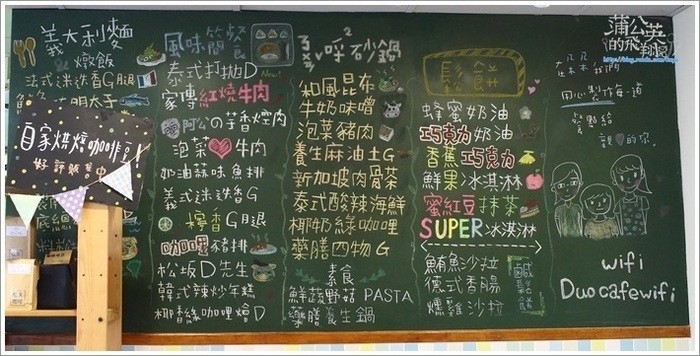 義大利麵
燉飯
法式迷迭香G腿
自家烘焙咖啡豆
好評販售中
風味簡餐
泰式打拋D
New!
家傳紅燒牛肉
阿公の芋香燜肉
泡菜♥牛肉
奶油蒜味魚排
義式迷迭香G
檸香G腿
咖哩豬排
松坂D先生
韓式辣炒年糕
椰香綠咖哩燉D
ㄋㄞˋ呼砂鍋
和風昆布
牛奶味噌
泡菜豬肉
養生麻油土G
新加坡肉骨茶
泰式酸辣海鮮
椰奶綠咖哩
藥膳四物G
素食
鮮蔬野菇PASTA
藥膳養生鍋
鬆餅
蜂蜜奶油
巧克力奶油
香蕉巧克力
鮮果冰淇淋
蜜紅豆抹茶
SUPER冰淇淋
鮪魚沙拉
德式香腸
燻雞沙拉
鹹鬆餅
蒲公英
的飛翔
用心製作每一道
餐點給
親愛的您.
wifi
Duocafewifi